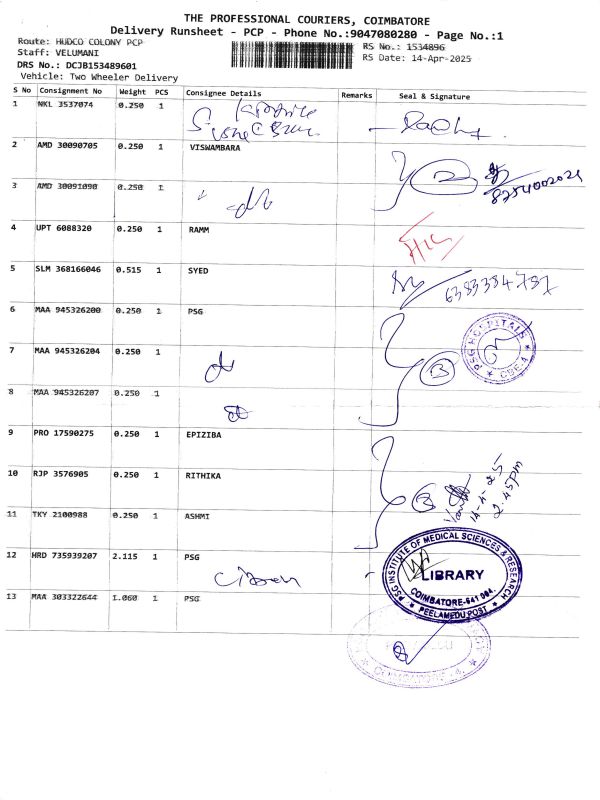 THE PROFESSIONAL COURIERS, COIMBATORE
Delivery Runsheet - PCP - Phone No.:9047080280 - Page No.:1
Route: HUDCO COLONY PCP
RS No.: 1534896
Staff: VELUMANI
RS Date: 14-Apr-2025
DRS No.: DCJB153489601
Vehicle: Two Wheeler Delivery
S No Consignment No Weight PCS Consignee Details Remarks Seal & Signature
1 NKL 3537074 0.250 1
2 AMD 30090705 0.250 1 VISWAMBARA
2
8754002021
3 AMD 30091090 0.250 1
4 UPT 6088320 0.250 1 RAMM
5 SLM 368166046 0.515 1 SYED
6383384787
6 MAA 945326200 0.250 1 PSG
PSG HOSPITALS
CBE-4
7 MAA 945326204 0.250 1
3
8 MAA 945326207 0.250 1
9 PRO 17590275 0.250 1 EPIZIBA
10 RJP 3576905 0.250 1 RITHIKA
3
14-4-25
2.45pm
11 TKY 2100988 0.250 1 ASHMI
12 HRD 735939207 2.115 1 PSG
PSG INSTITUTE OF MEDICAL SCIENCES & RESEARCH
LIBRARY
COIMBATORE-641 004.
PEELAMEDU POST
13 MAA 303322644 1.060 1 PSG